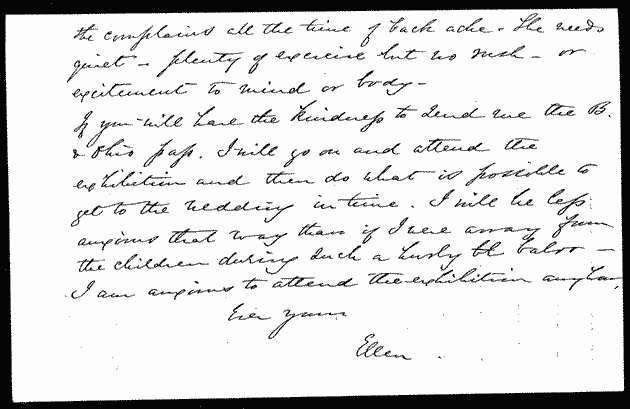 the complains all the time of back ache. She needs
quiet - plenty of exercise but no rush - or
excitement to mind or body -
If you will have the kindness to send me the B.
& Ohio pass. I will go on and attend the
exhibition and then do what is possible to
get to the wedding in time. I will be less
anxious that way than if I were away from
the children during such a hurly
I am anxious to attend the exhibition anyhow,
Ever yours
Ellen